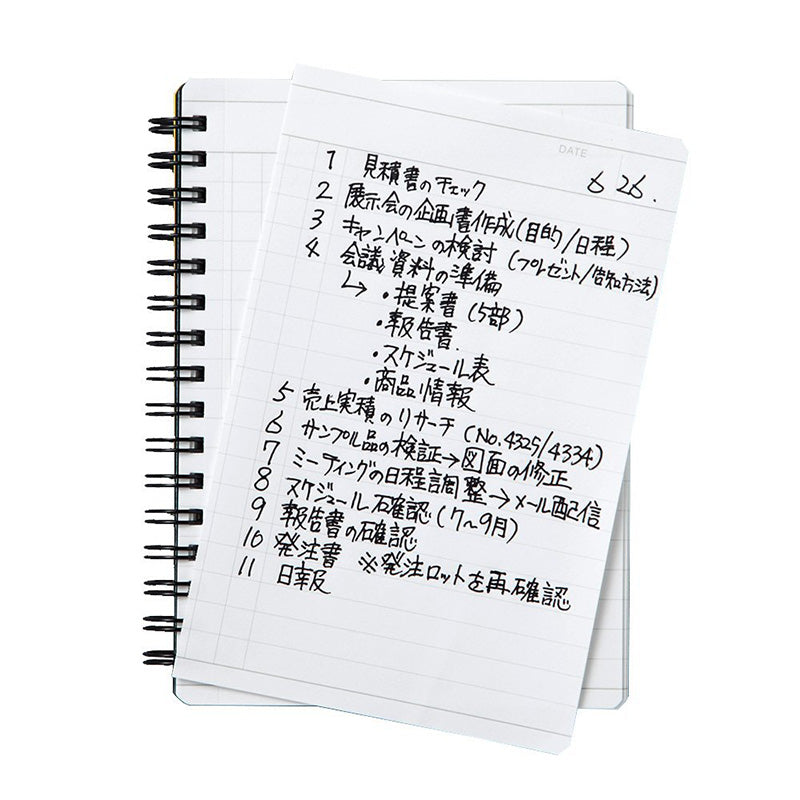 DATE
6 26.
1 見積書のチェック
2 展示会の企画書作成(目的/日程)
3 キャンペーンの検討 (プレゼント/告知方法)
4 会議資料の準備
↳ ・提案書 (5部)
・報告書.
・スケジュール表
・商品情報
5 売上実積のリサーチ (No.4325/4334)
6 サンプル品の検証→図面の修正
7 ミーティングの日程調整→メール配信
8 スケジュール確認(7~9月)
9 報告書の確認
10 発注書 ※発注ロットを再確認
11 日報